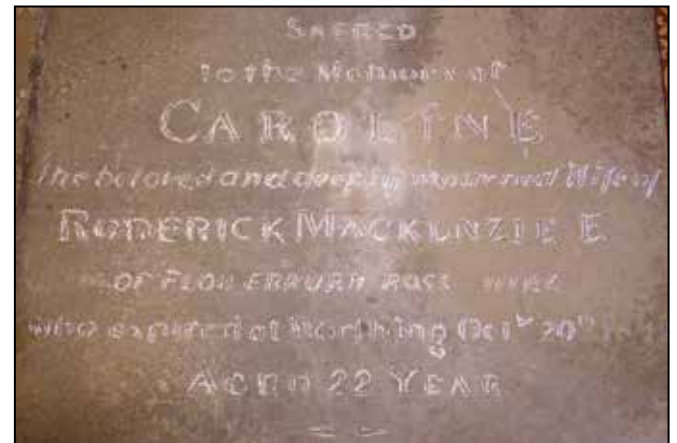 SACRED
to the Memory of
CAROLINE
the beloved and deeply lamented Wife of
RODERICK MACKENZIE E
OF FLOWERBURN ROSS
who expired at Worthing Oct 20
AGED 22 YEAR